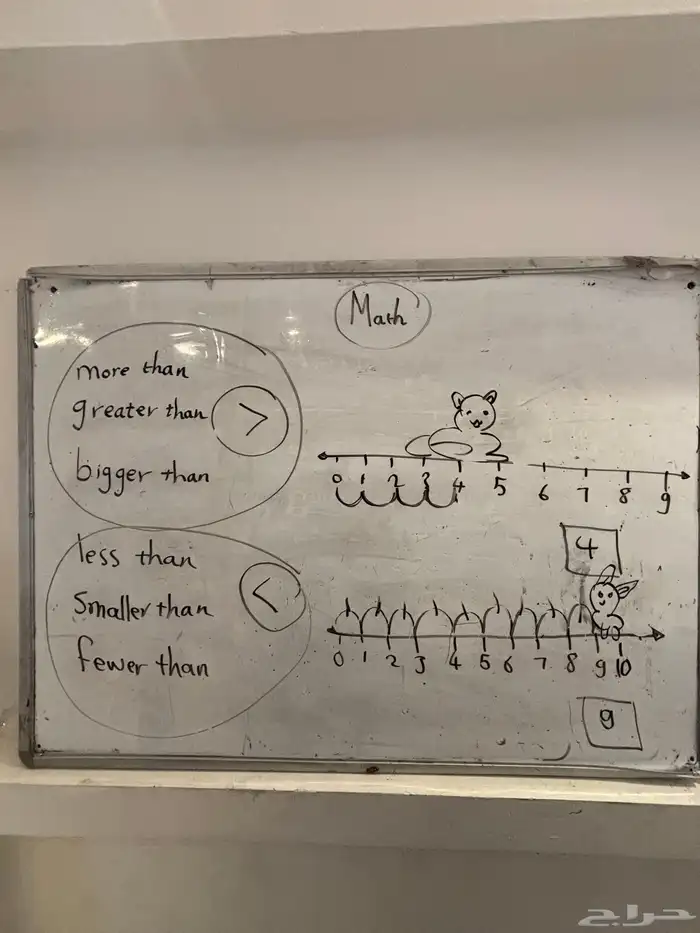 Math
more than
greater than >
bigger than
less than
smaller than <
fewer than
0 1 2 3 4 5 6 7 8 9
4
0 1 2 3 4 5 6 7 8 9 10
9
حراج